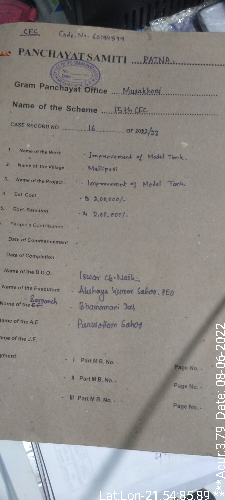 CFC Code. No- 60194599
PANCHAYAT SAMITI PATNA
Gram Panchayat Office Musakhori
Name of the Scheme 15th CFC
CASE RECORD NO. 16 OF 2022/23
1. Name of the Work - Improvement of Model Tank.
2. Name of the Village - Mallipasi
3. Name of the Project - Improvement of Model Tank
4. Est. Cost - ₹ 2,00,000/-
5. Govt. Sanction - ₹ 2,00,000/-
People's Contribution
Date of Commencement -
Date of Completion
Name of the B.D.O. Iswar Ch. Naik
Name of the Executive - Akshaya Kumar Sahoo, PEO
Name of the Sarpanch
Name of the A.E.
Name of the J.E.
I Part M.B. No.- Page No.-
II Part M.B. No.- Page No.-
III Part M.B. No.- Page No.-
Lat Lon-21.54,85.89
***Acur:3.79 Date: 08-06-2022